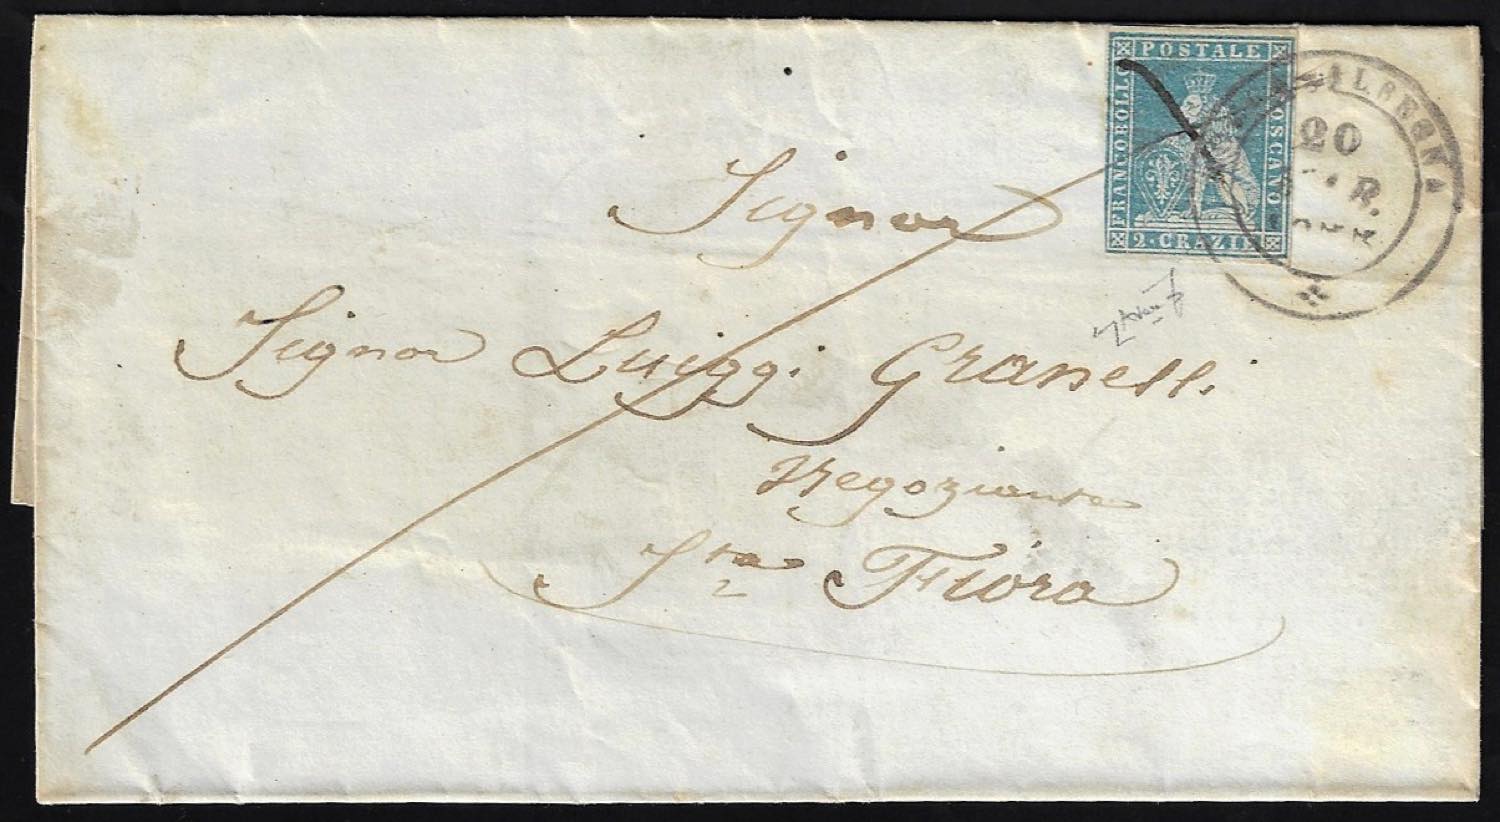 FRANCOBOLLO POSTALE TOSCANO
2·CRAZIE
ALBEGNA
20
Signor
Signor Luiggi Granelli
Negoziante
Sta Fiora